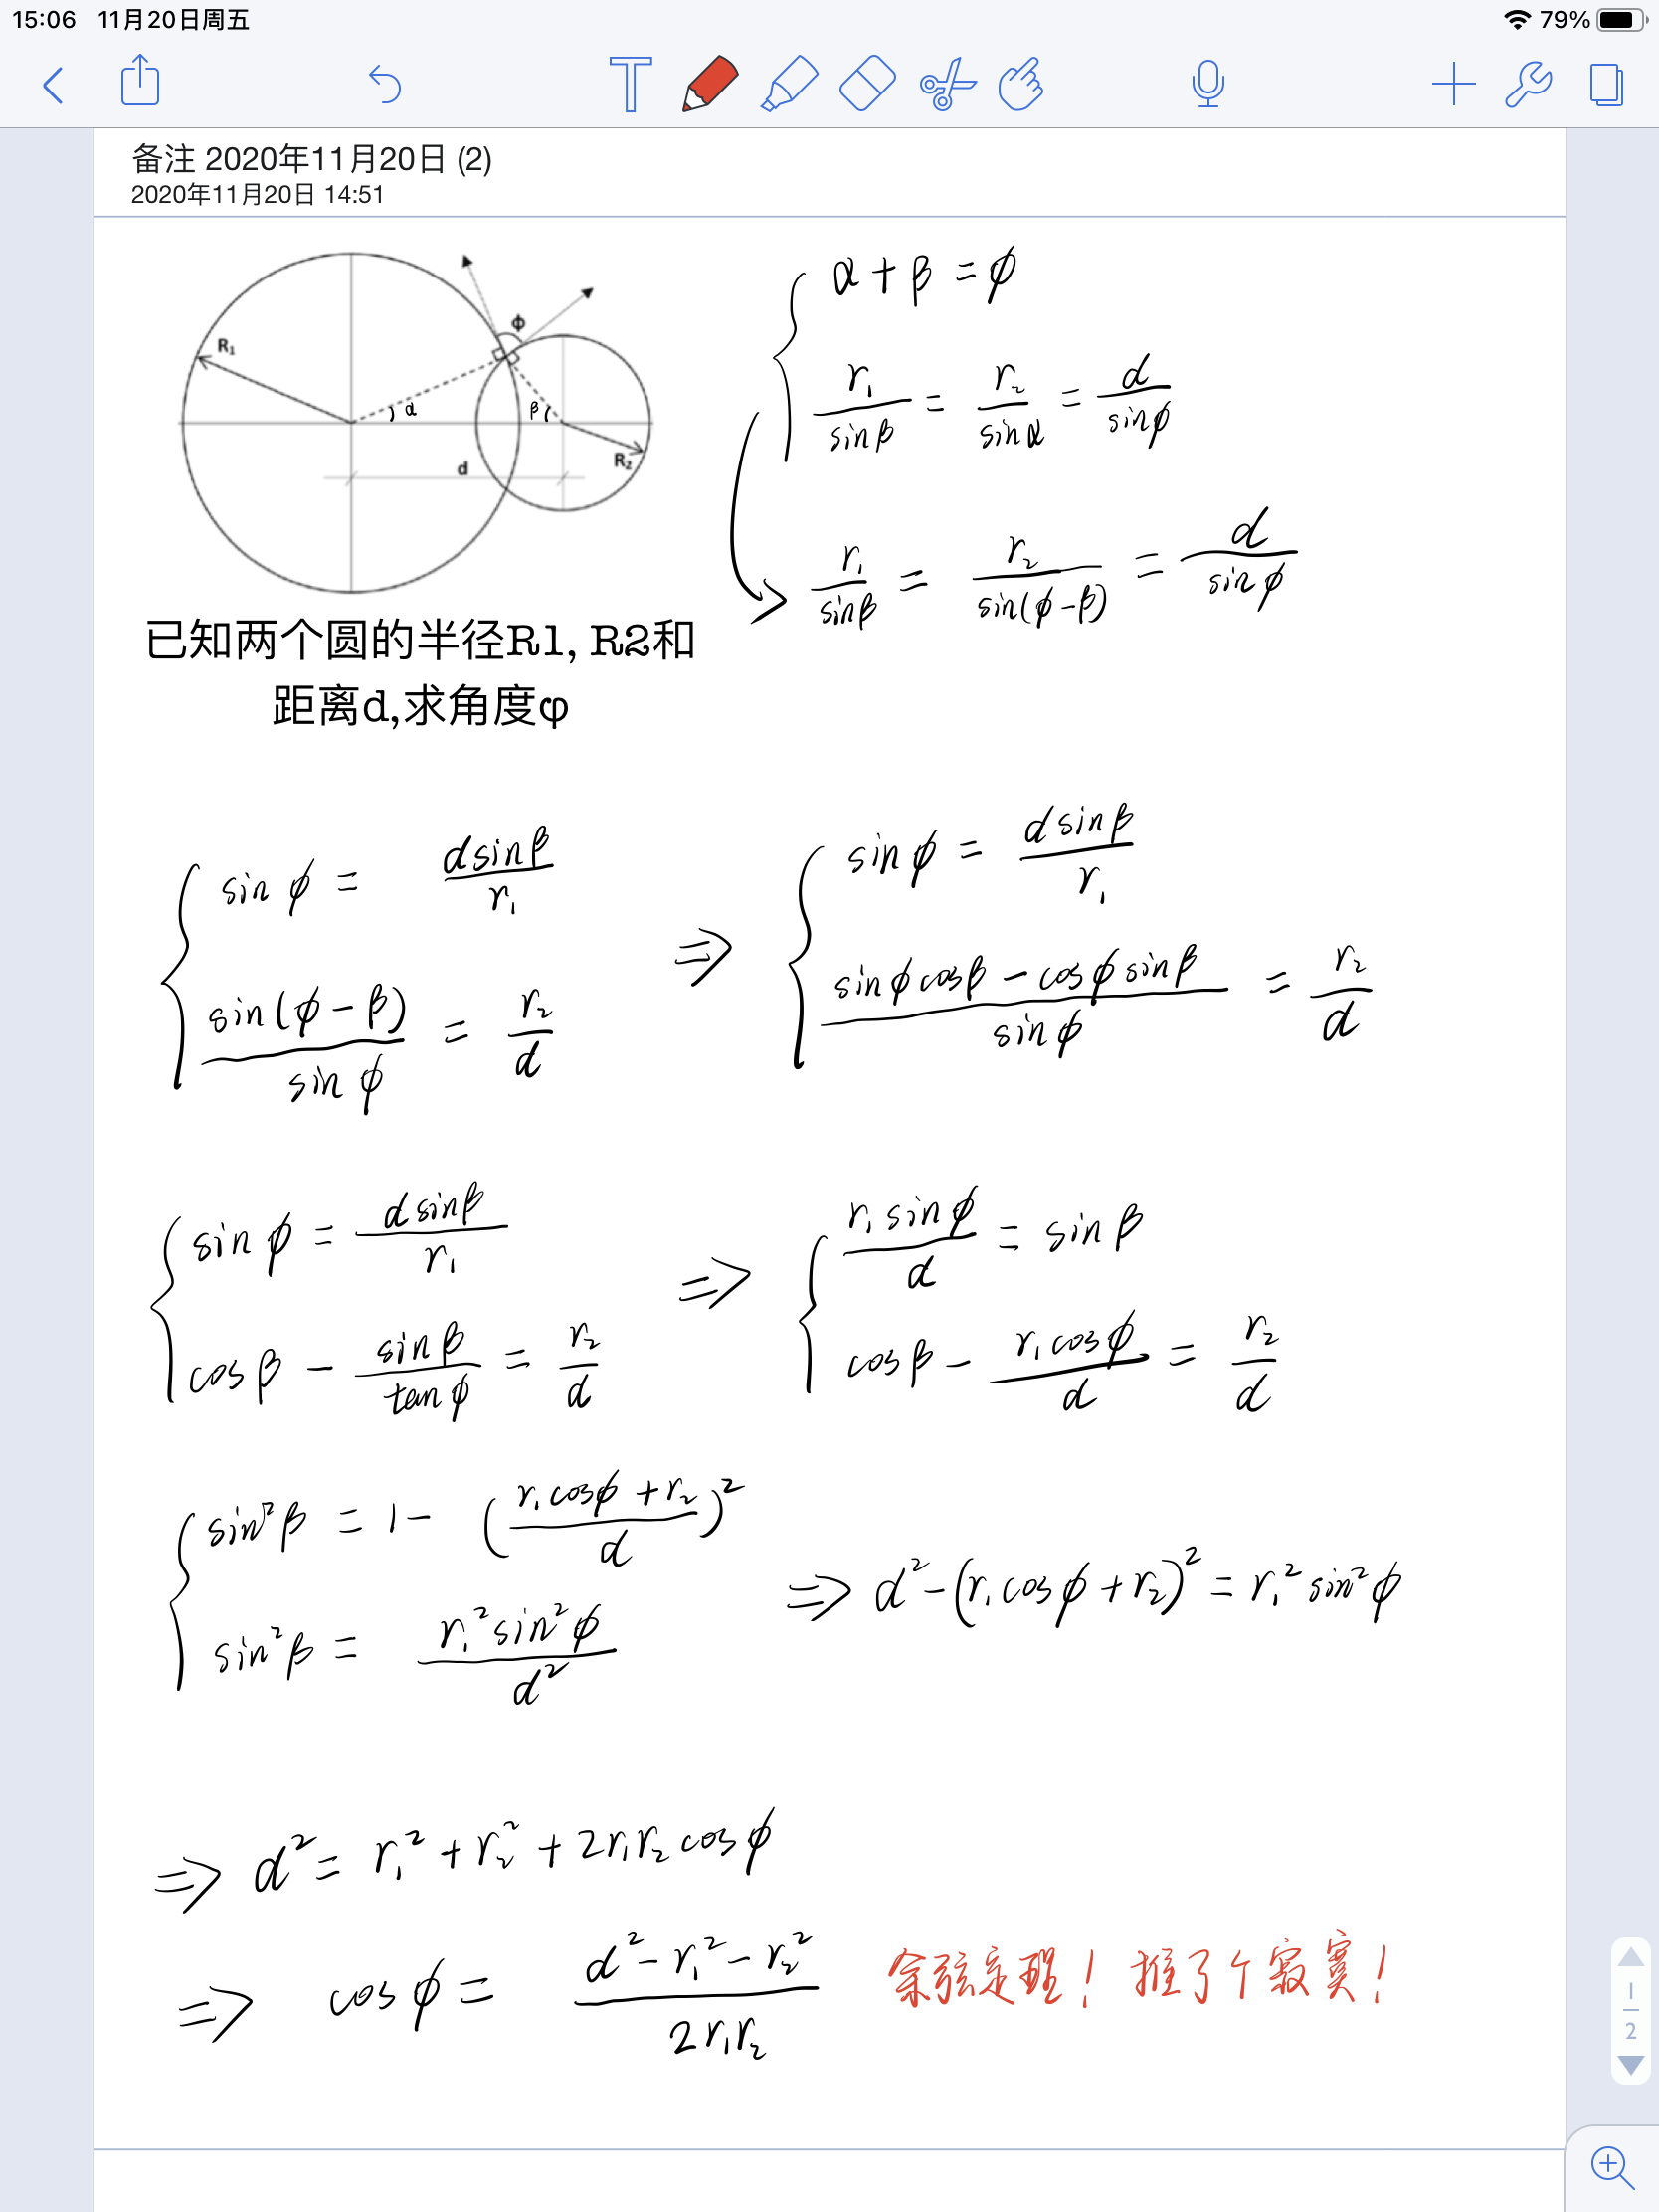 15:06 11月20日周五 79%
备注 2020年11月20日 (2)
2020年11月20日 14:51
R₁ α β ϕ d R₂
已知两个圆的半径R1, R2和
距离d,求角度φ
α + β = ϕ
r₁/sinβ = r₂/sinα = d/sinϕ
r₁/sinβ = r₂/sin(ϕ-β) = d/sinϕ
sinϕ = dsinβ/r₁
sin(ϕ-β)/sinϕ = r₂/d
⇒ sinϕ = dsinβ/r₁
(sinϕcosβ - cosϕsinβ)/sinϕ = r₂/d
sinϕ = dsinβ/r₁
cosβ - sinβ/tanϕ = r₂/d
⇒ r₁sinϕ/d = sinβ
cosβ - r₁cosϕ/d = r₂/d
sin²β = 1 - ((r₁cosϕ + r₂)/d)²
sin²β = r₁²sin²ϕ/d²
⇒ d² - (r₁cosϕ + r₂)² = r₁²sin²ϕ
⇒ d² = r₁² + r₂² + 2r₁r₂cosϕ
⇒ cosϕ = (d² - r₁² - r₂²)/2r₁r₂
余弦定理! 推了个寂寞!
1
2